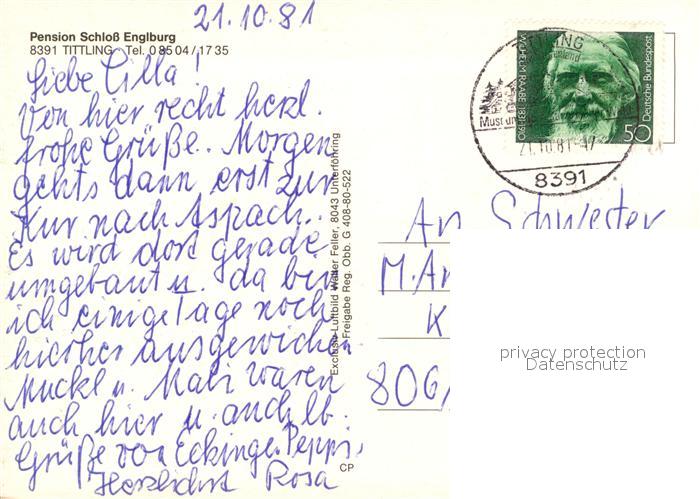 21.10.81
Pension Schloß Englburg
8391 TITTLING Tel. 0 85 04 / 17 35
Liebe Cilla!
Von hier recht herzl.
frohe Grüße. Morgen
gehts dann erst zur
Kur nach Aspach.
Es wird dort gerade
umgebaut u. da bin
ich einige Tage noch
hierher ausgewichen
Muckl u. Mabi waren
auch hier u. auch lb.
Grüße von Eckinger Peppi.
Herzlichst Rosa
Exclusiv-Luftbild Walter Feller, 8043 Unterföhring
Freigabe Reg. Obb. G 408-80-522
CP
WILHELM RAABE 1831-1910
Deutsche Bundespost
50
TITTLING
Museum
21.10.81-17
8391
An Schwester
M. An
K
806
privacy protection
Datenschutz